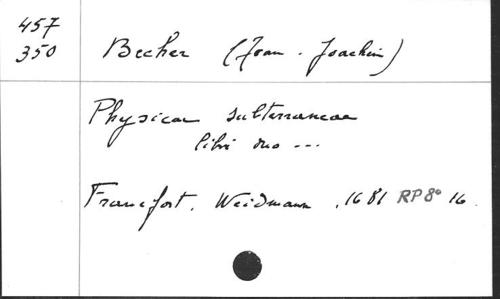 457
350
Becher (Joan. Joachim)
Physicae subterraneae
libri duo ...
Francfort. Weidmann, 1681 RP 8° 16.